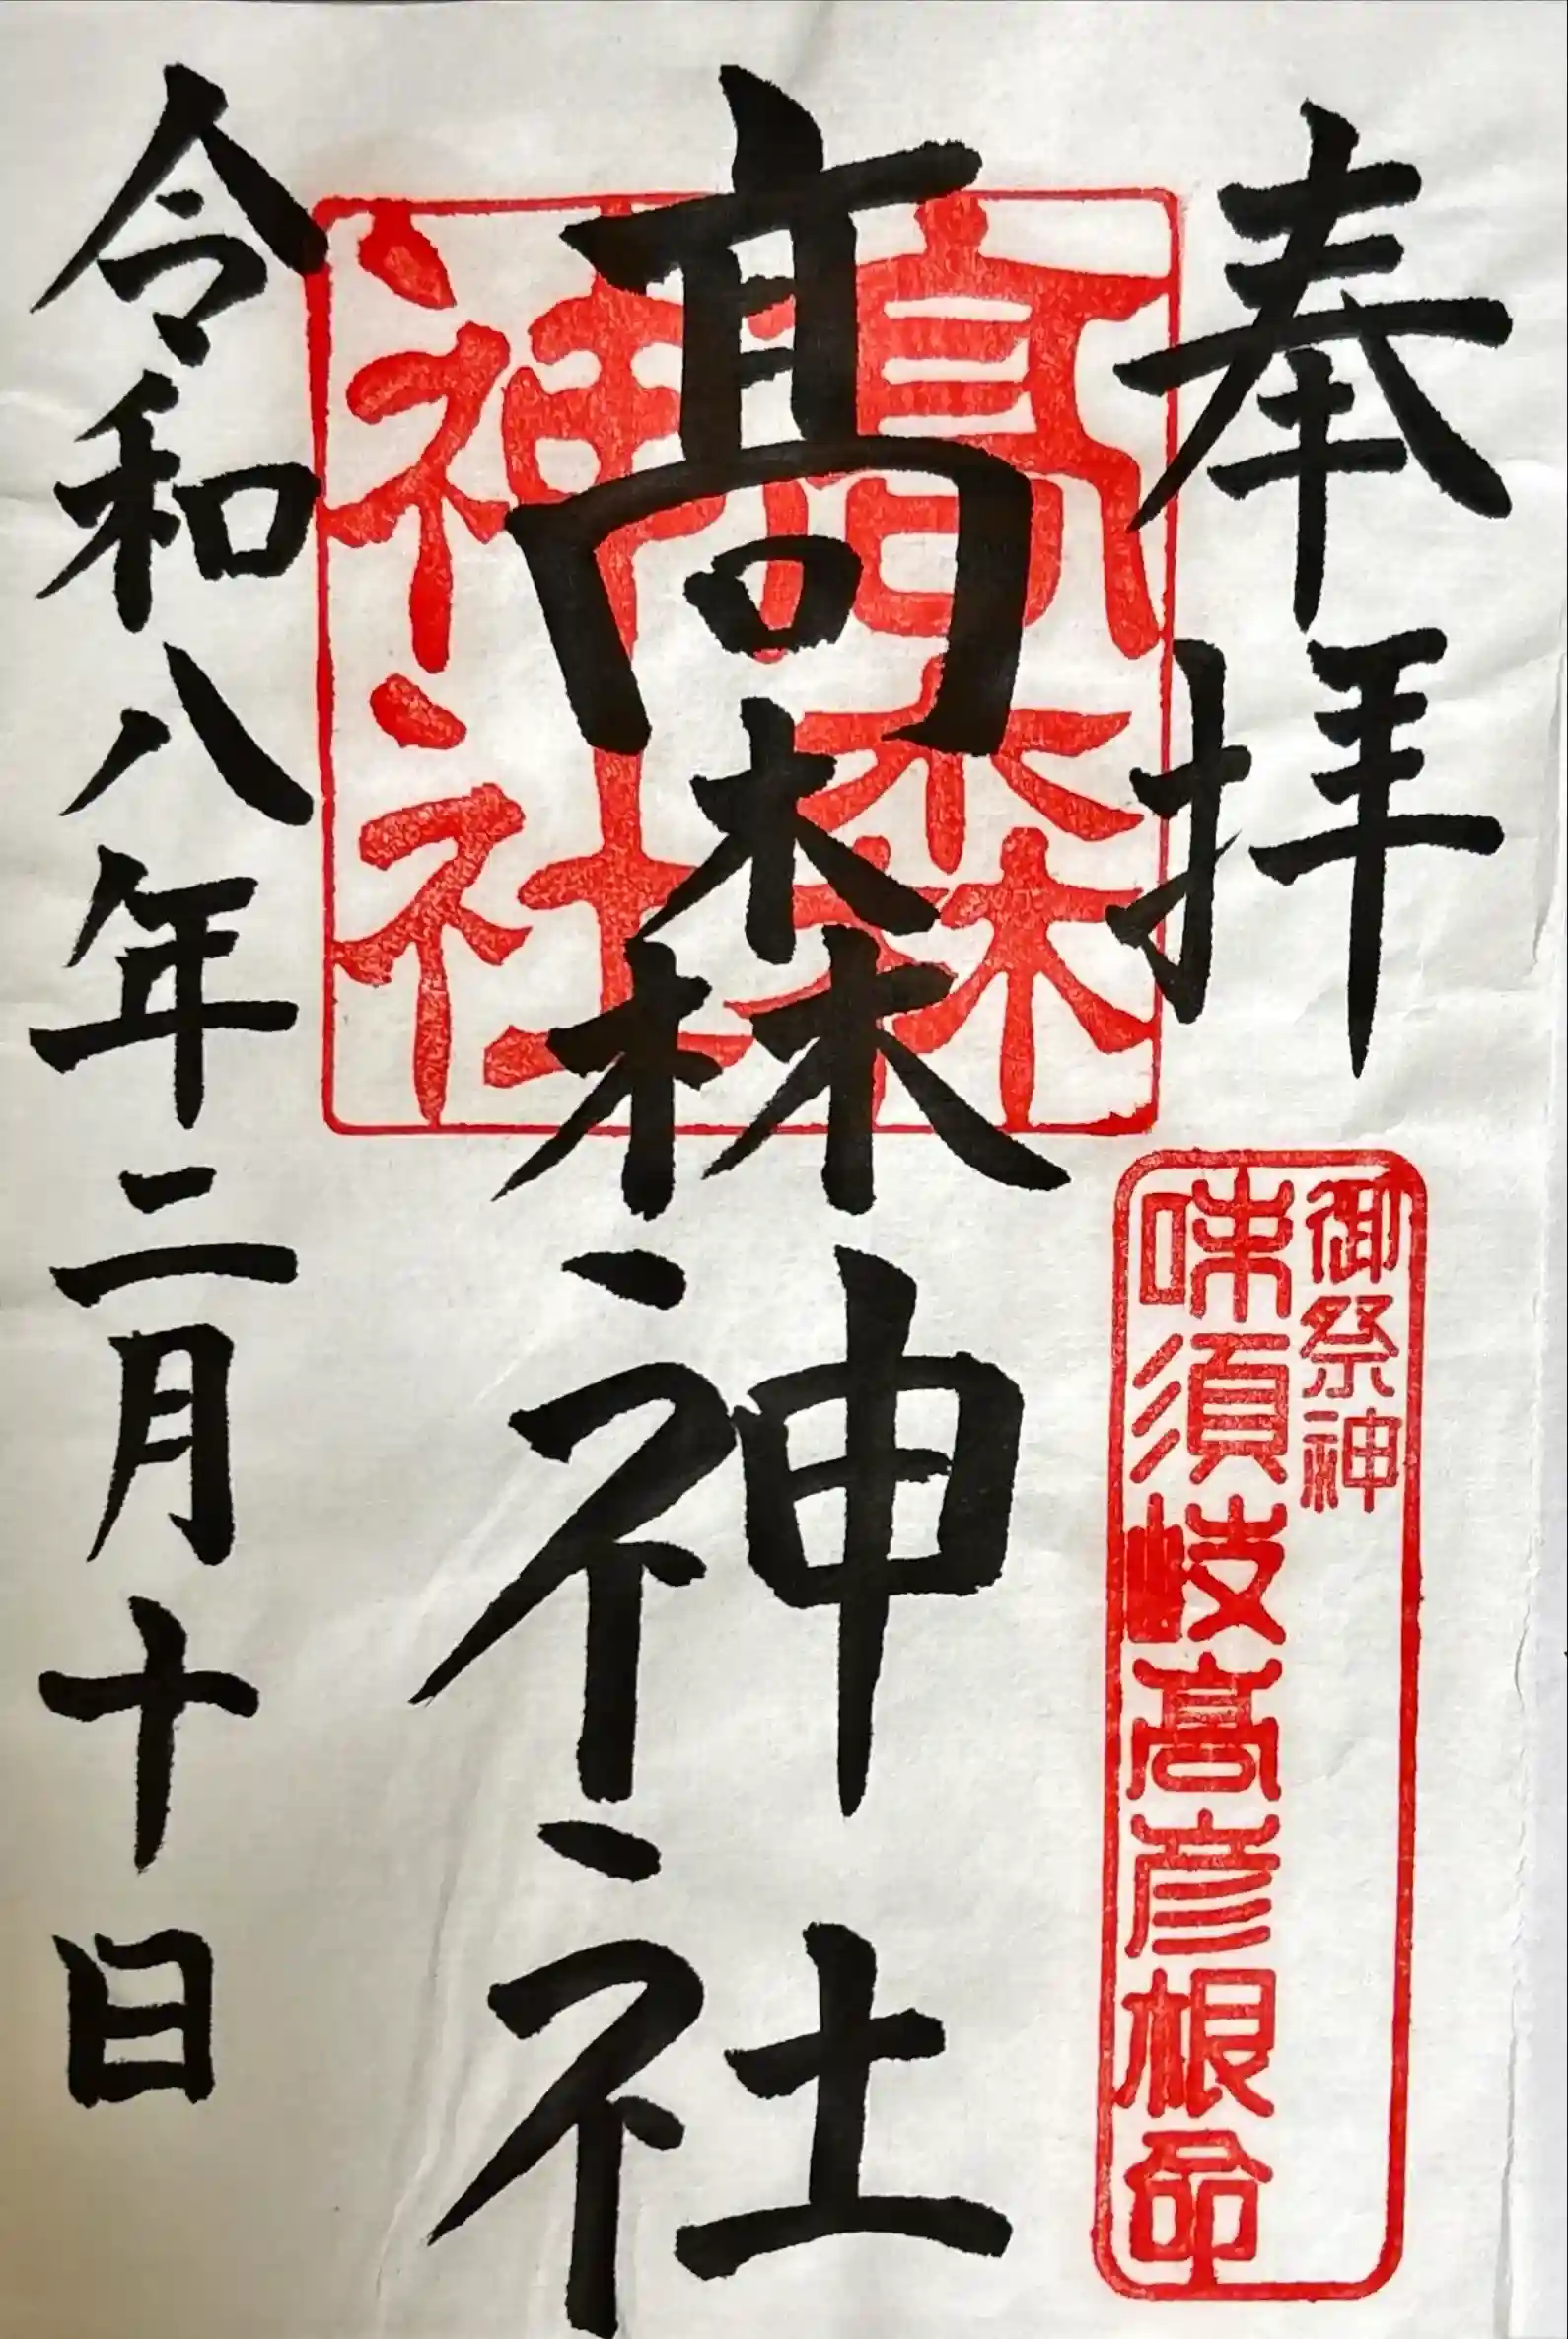 奉拝
御祭神
味須岐髙彦根命
髙森神社
髙森
神社
令和八年二月十日